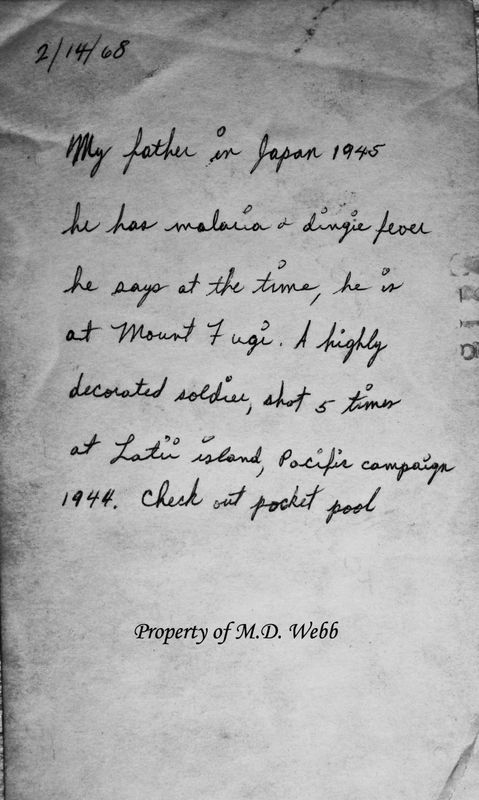 2/14/68
My father in Japan 1945
he has malaria & dingie fever
he says at the time, he is
at Mount Fugi. A highly
decorated soldier, shot 5 times
at Latii island, Pacific campaign
1944. Check out pocket pool
Property of M.D. Webb